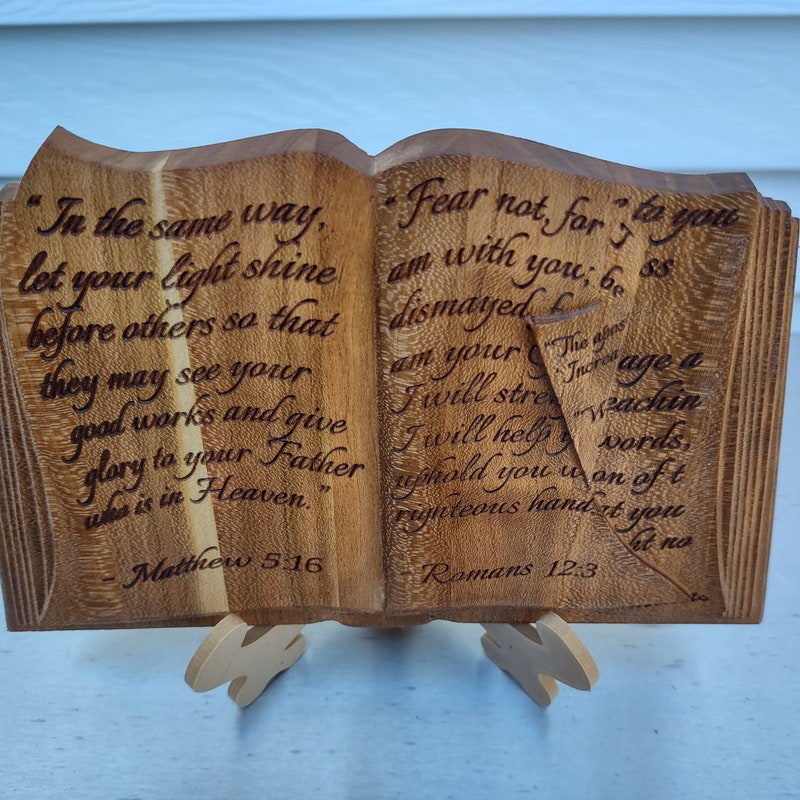 “In the same way,
let your light shine
before others so that
they may see your
good works and give
glory to your Father
who is in Heaven.”
- Matthew 5:16
“Fear not, for
am with you; be
dismayed, f
am your G
I will stre
I will help y
uphold you w
righteous hand
- Romans 12:3
" to you
ss
"The apos
"Increa
age a
"Reachin
words,
on of t
at you
ht no